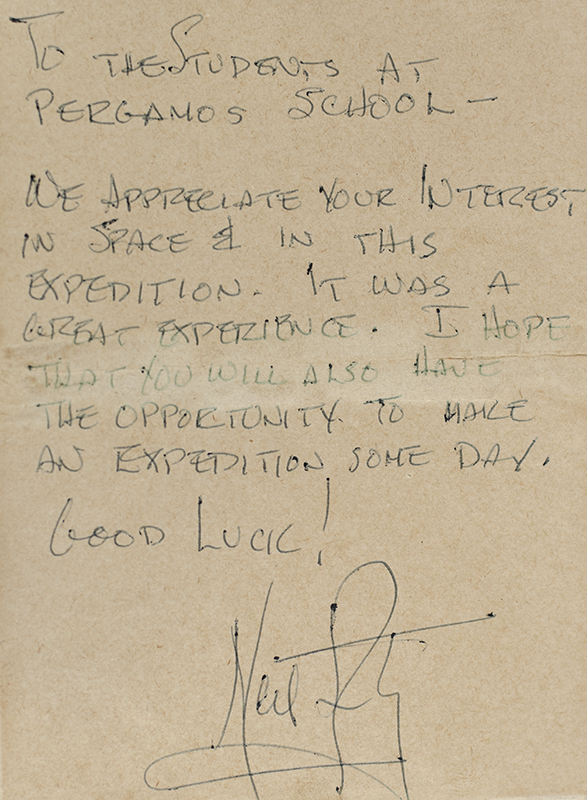 TO THE STUDENTS AT
PERGAMOS SCHOOL —
WE APPRECIATE YOUR INTEREST
IN SPACE & IN THIS
EXPEDITION. IT WAS A
GREAT EXPERIENCE. I HOPE
THAT YOU WILL ALSO HAVE
THE OPPORTUNITY TO MAKE
AN EXPEDITION SOME DAY.
GOOD LUCK!
Neil